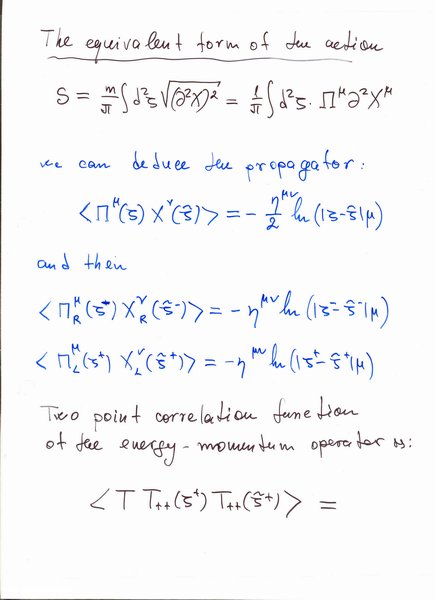 The equivalent form of the action
S = m/π ∫d²ζ √(∂²X)² = 1/π ∫d²ζ · Π^μ ∂²X^μ
we can deduce the propagator:
< Π^μ(ζ) X^ν(ζ̃) > = - η^μν/2 ln (|ζ-ζ̃|μ)
and then
< Π_R^μ(ζ⁻) X_R^ν(ζ̃⁻) > = - η^μν ln (|ζ⁻-ζ̃⁻|μ)
< Π_L^μ(ζ⁺) X_L^ν(ζ̃⁺) > = -η^μν ln (|ζ⁺-ζ̃⁺|μ)
Two point correlation function
of the energy-momentum operator is:
< T T₊₊(ζ⁺) T₊₊(ζ̃⁺) > =